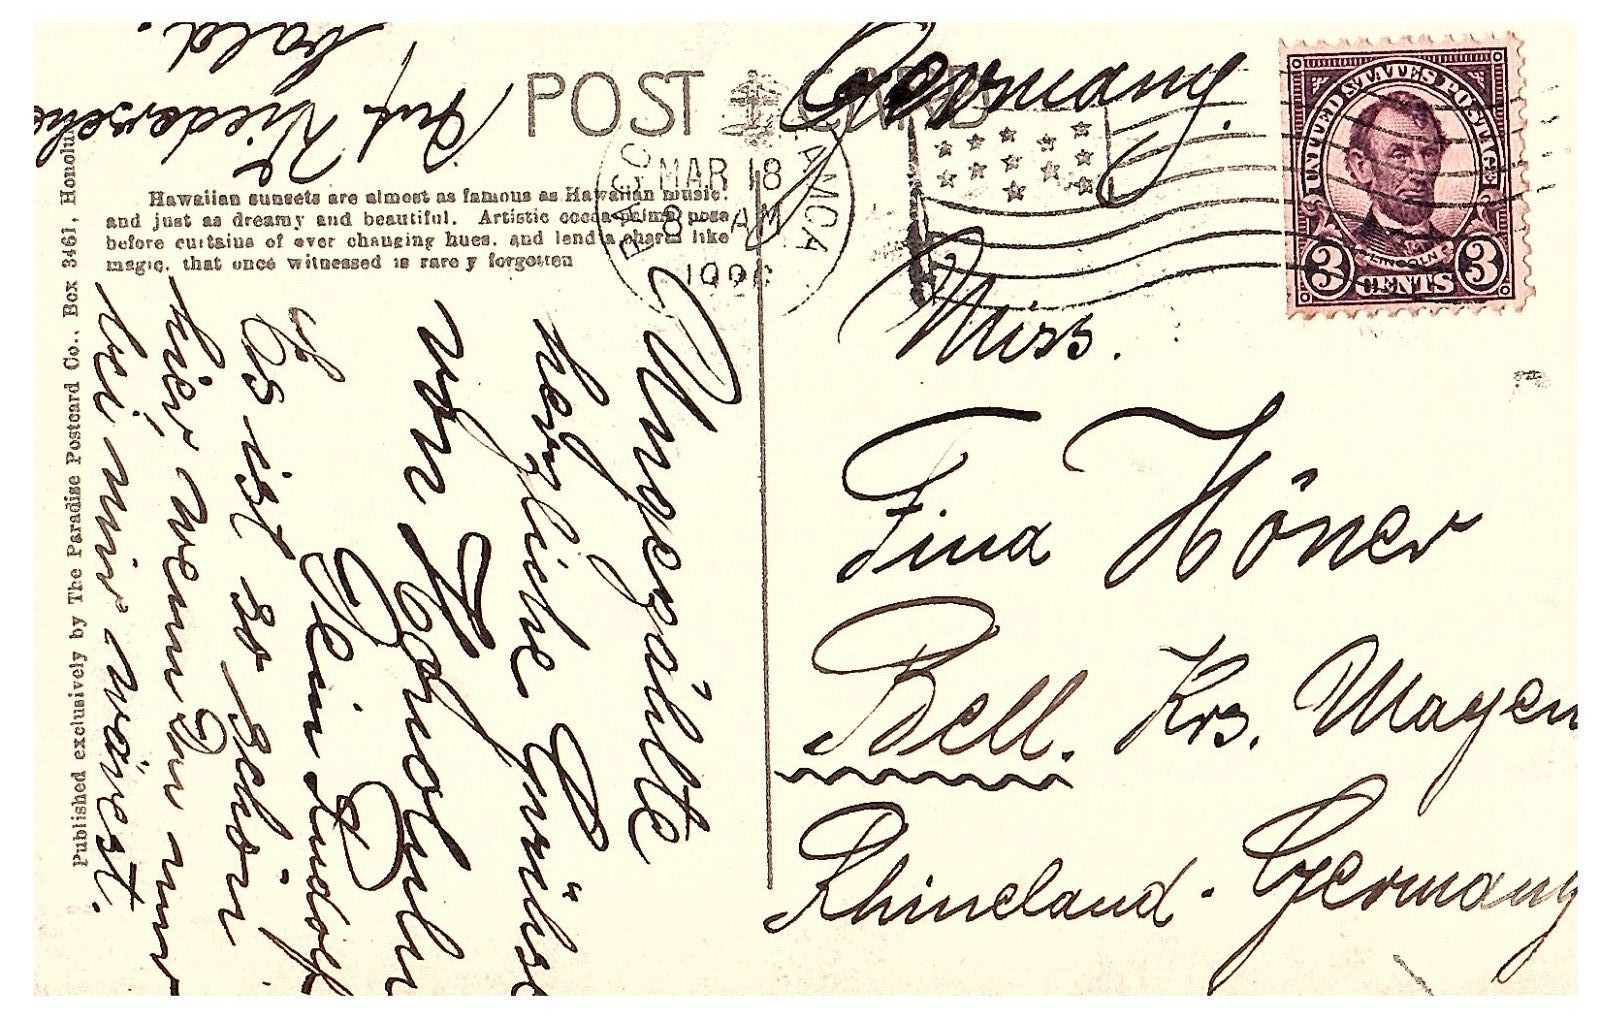 Auf Wiedersehn
bald.
POST CARD
Germany.
MAR 18
8 AM
UNITED STATES POSTAGE
LINCOLN
3 CENTS 3
Hawaiian sunsets are almost as famous as Hawaiian music.
and just as dreamy and beautiful. Artistic cocoa palms pose
before curtains of ever changing hues. and lend a charm like
magic. that once witnessed is rare y forgotten
Published exclusively by The Paradise Postcard Co.. Box 3461, Honolulu
Ungezählte
herzliche Grüße
von Honolulu
Dein Rudolf
Es ist so schön
hier wenn Du nur
bei mir wärest.
Miss.
Fina Höner
Bell. Krs. Mayen
Rhineland. Germany